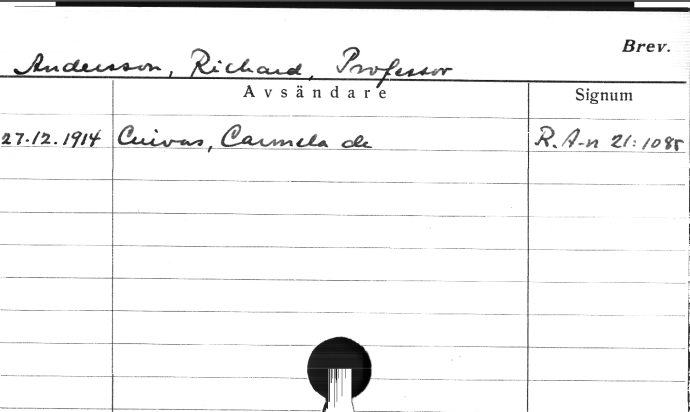 Brev.
Andersson, Richard, Professor
Avsändare Signum
27.12.1914 Cuivas, Carmela de R. A-n 21:1085